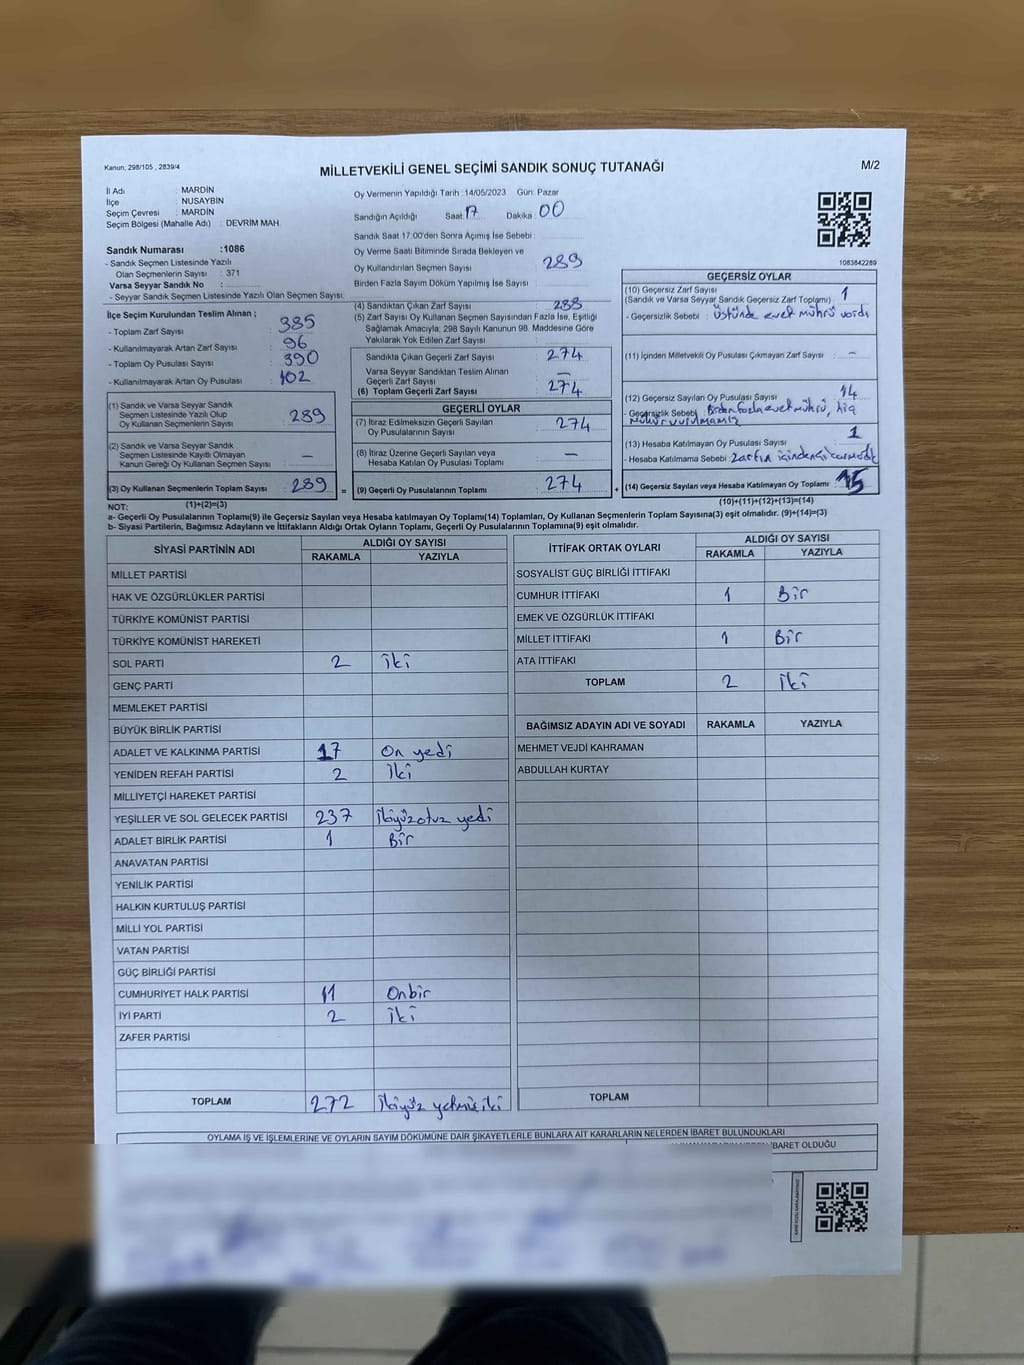 Kanun; 298/105 , 2839/4
MİLLETVEKİLİ GENEL SEÇİMİ SANDIK SONUÇ TUTANAĞI
M/2
İl Adı : MARDİN
İlçe : NUSAYBİN
Seçim Çevresi : MARDİN
Seçim Bölgesi (Mahalle Adı) : DEVRİM MAH
Sandık Numarası :1086
- Sandık Seçmen Listesinde Yazılı
Olan Seçmenlerin Sayısı : 371
Varsa Seyyar Sandık No :
- Seyyar Sandık Seçmen Listesinde Yazılı Olan Seçmen Sayısı:
İlçe Seçim Kurulundan Teslim Alınan ;
- Toplam Zarf Sayısı : 385
- Kullanılmayarak Artan Zarf Sayısı : 96
- Toplam Oy Pusulası Sayısı : 390
- Kullanılmayarak Artan Oy Pusulası : 102
(1) Sandık ve Varsa Seyyar Sandık
Seçmen Listesinde Yazılı Olup
Oy Kullanan Seçmenlerin Sayısı : 289
(2) Sandık ve Varsa Seyyar Sandık
Seçmen Listesinde Kayıtlı Olmayan
Kanun Gereği Oy Kullanan Seçmen Sayısı : –
(3) Oy Kullanan Seçmenlerin Toplam Sayısı : 289
Oy Vermenin Yapıldığı Tarih :14/05/2023 Gün: Pazar
Sandığın Açıldığı Saat: 17 Dakika: 00
Sandık Saat 17.00'den Sonra Açımış İse Sebebi :
Oy Verme Saati Bitiminde Sırada Bekleyen ve
Oy Kullandırılan Seçmen Sayısı : 289
Birden Fazla Sayım Döküm Yapılmış İse Sayısı :
(4) Sandıktan Çıkan Zarf Sayısı : 288
(5) Zarf Sayısı Oy Kullanan Seçmen Sayısından Fazla İse, Eşitliği
Sağlamak Amacıyla, 298 Sayılı Kanunun 98. Maddesine Göre
Yakılarak Yok Edilen Zarf Sayısı :
Sandıkta Çıkan Geçerli Zarf Sayısı : 274
Varsa Seyyar Sandıktan Teslim Alınan
Geçerli Zarf Sayısı : –
(6) Toplam Geçerli Zarf Sayısı : 274
GEÇERLİ OYLAR
(7) İtiraz Edilmeksizin Geçerli Sayılan
Oy Pusulalarının Sayısı : 274
(8) İtiraz Üzerine Geçerli Sayılan veya
Hesaba Katılan Oy Pusulası Toplamı : –
= (9) Geçerli Oy Pusulalarının Toplamı : 274
1083842289
GEÇERSİZ OYLAR
(10) Geçersiz Zarf Sayısı
(Sandık ve Varsa Seyyar Sandık Geçersiz Zarf Toplamı) : 1
- Geçersizlik Sebebi : üstünde evet mührü vardı
(11) İçinden Milletvekili Oy Pusulası Çıkmayan Zarf Sayısı : –
(12) Geçersiz Sayılan Oy Pusulası Sayısı : 14
- Geçersizlik Sebebi : Birden fazla evet mührü, hiç
mühür vurulmamış
(13) Hesaba Katılmayan Oy Pusulası Sayısı : 1
- Hesaba Katılmama Sebebi : zarfın içinden
+ (14) Geçersiz Sayılan veya Hesaba Katılmayan Oy Toplamı : 15
NOT: (1)+(2)=(3) (10)+(11)+(12)+(13)=(14)
a- Geçerli Oy Pusulalarının Toplamı(9) ile Geçersiz Sayılan veya Hesaba Katılmayan Oy Toplamı(14) Toplamları, Oy Kullanan Seçmenlerin Toplam Sayısına(3) eşit olmalıdır. (9)+(14)=(3)
b- Siyasi Partilerin, Bağımsız Adayların ve İttifakların Aldığı Ortak Oyların Toplamı, Geçerli Oy Pusulalarının Toplamına(9) eşit olmalıdır.
SİYASİ PARTİNİN ADI ALDIĞI OY SAYISI
RAKAMLA YAZIYLA
MİLLET PARTİSİ
HAK VE ÖZGÜRLÜKLER PARTİSİ
TÜRKİYE KOMÜNİST PARTİSİ
TÜRKİYE KOMÜNİST HAREKETİ
SOL PARTİ 2 iki
GENÇ PARTİ
MEMLEKET PARTİSİ
BÜYÜK BİRLİK PARTİSİ
ADALET VE KALKINMA PARTİSİ 17 On yedi
YENİDEN REFAH PARTİSİ 2 İki
MİLLİYETÇİ HAREKET PARTİSİ
YEŞİLLER VE SOL GELECEK PARTİSİ 237 İkiyüzotuz yedi
ADALET BİRLİK PARTİSİ 1 Bir
ANAVATAN PARTİSİ
YENİLİK PARTİSİ
HALKIN KURTULUŞ PARTİSİ
MİLLİ YOL PARTİSİ
VATAN PARTİSİ
GÜÇ BİRLİĞİ PARTİSİ
CUMHURİYET HALK PARTİSİ 11 Onbir
İYİ PARTİ 2 İki
ZAFER PARTİSİ
TOPLAM 272 İkiyüz yetmiş iki
İTTİFAK ORTAK OYLARI ALDIĞI OY SAYISI
RAKAMLA YAZIYLA
SOSYALİST GÜÇ BİRLİĞİ İTTİFAKI
CUMHUR İTTİFAKI 1 Bir
EMEK VE ÖZGÜRLÜK İTTİFAKI
MİLLET İTTİFAKI 1 Bir
ATA İTTİFAKI
TOPLAM 2 İki
BAĞIMSIZ ADAYIN ADI VE SOYADI RAKAMLA YAZIYLA
MEHMET VEJDİ KAHRAMAN
ABDULLAH KURTAY
TOPLAM
OYLAMA İŞ VE İŞLEMLERİNE VE OYLARIN SAYIM DÖKÜMÜNE DAİR ŞİKAYETLERLE BUNLARA AİT KARARLARIN NELERDEN İBARET BULUNDUKLARI
İBARET OLDUĞU